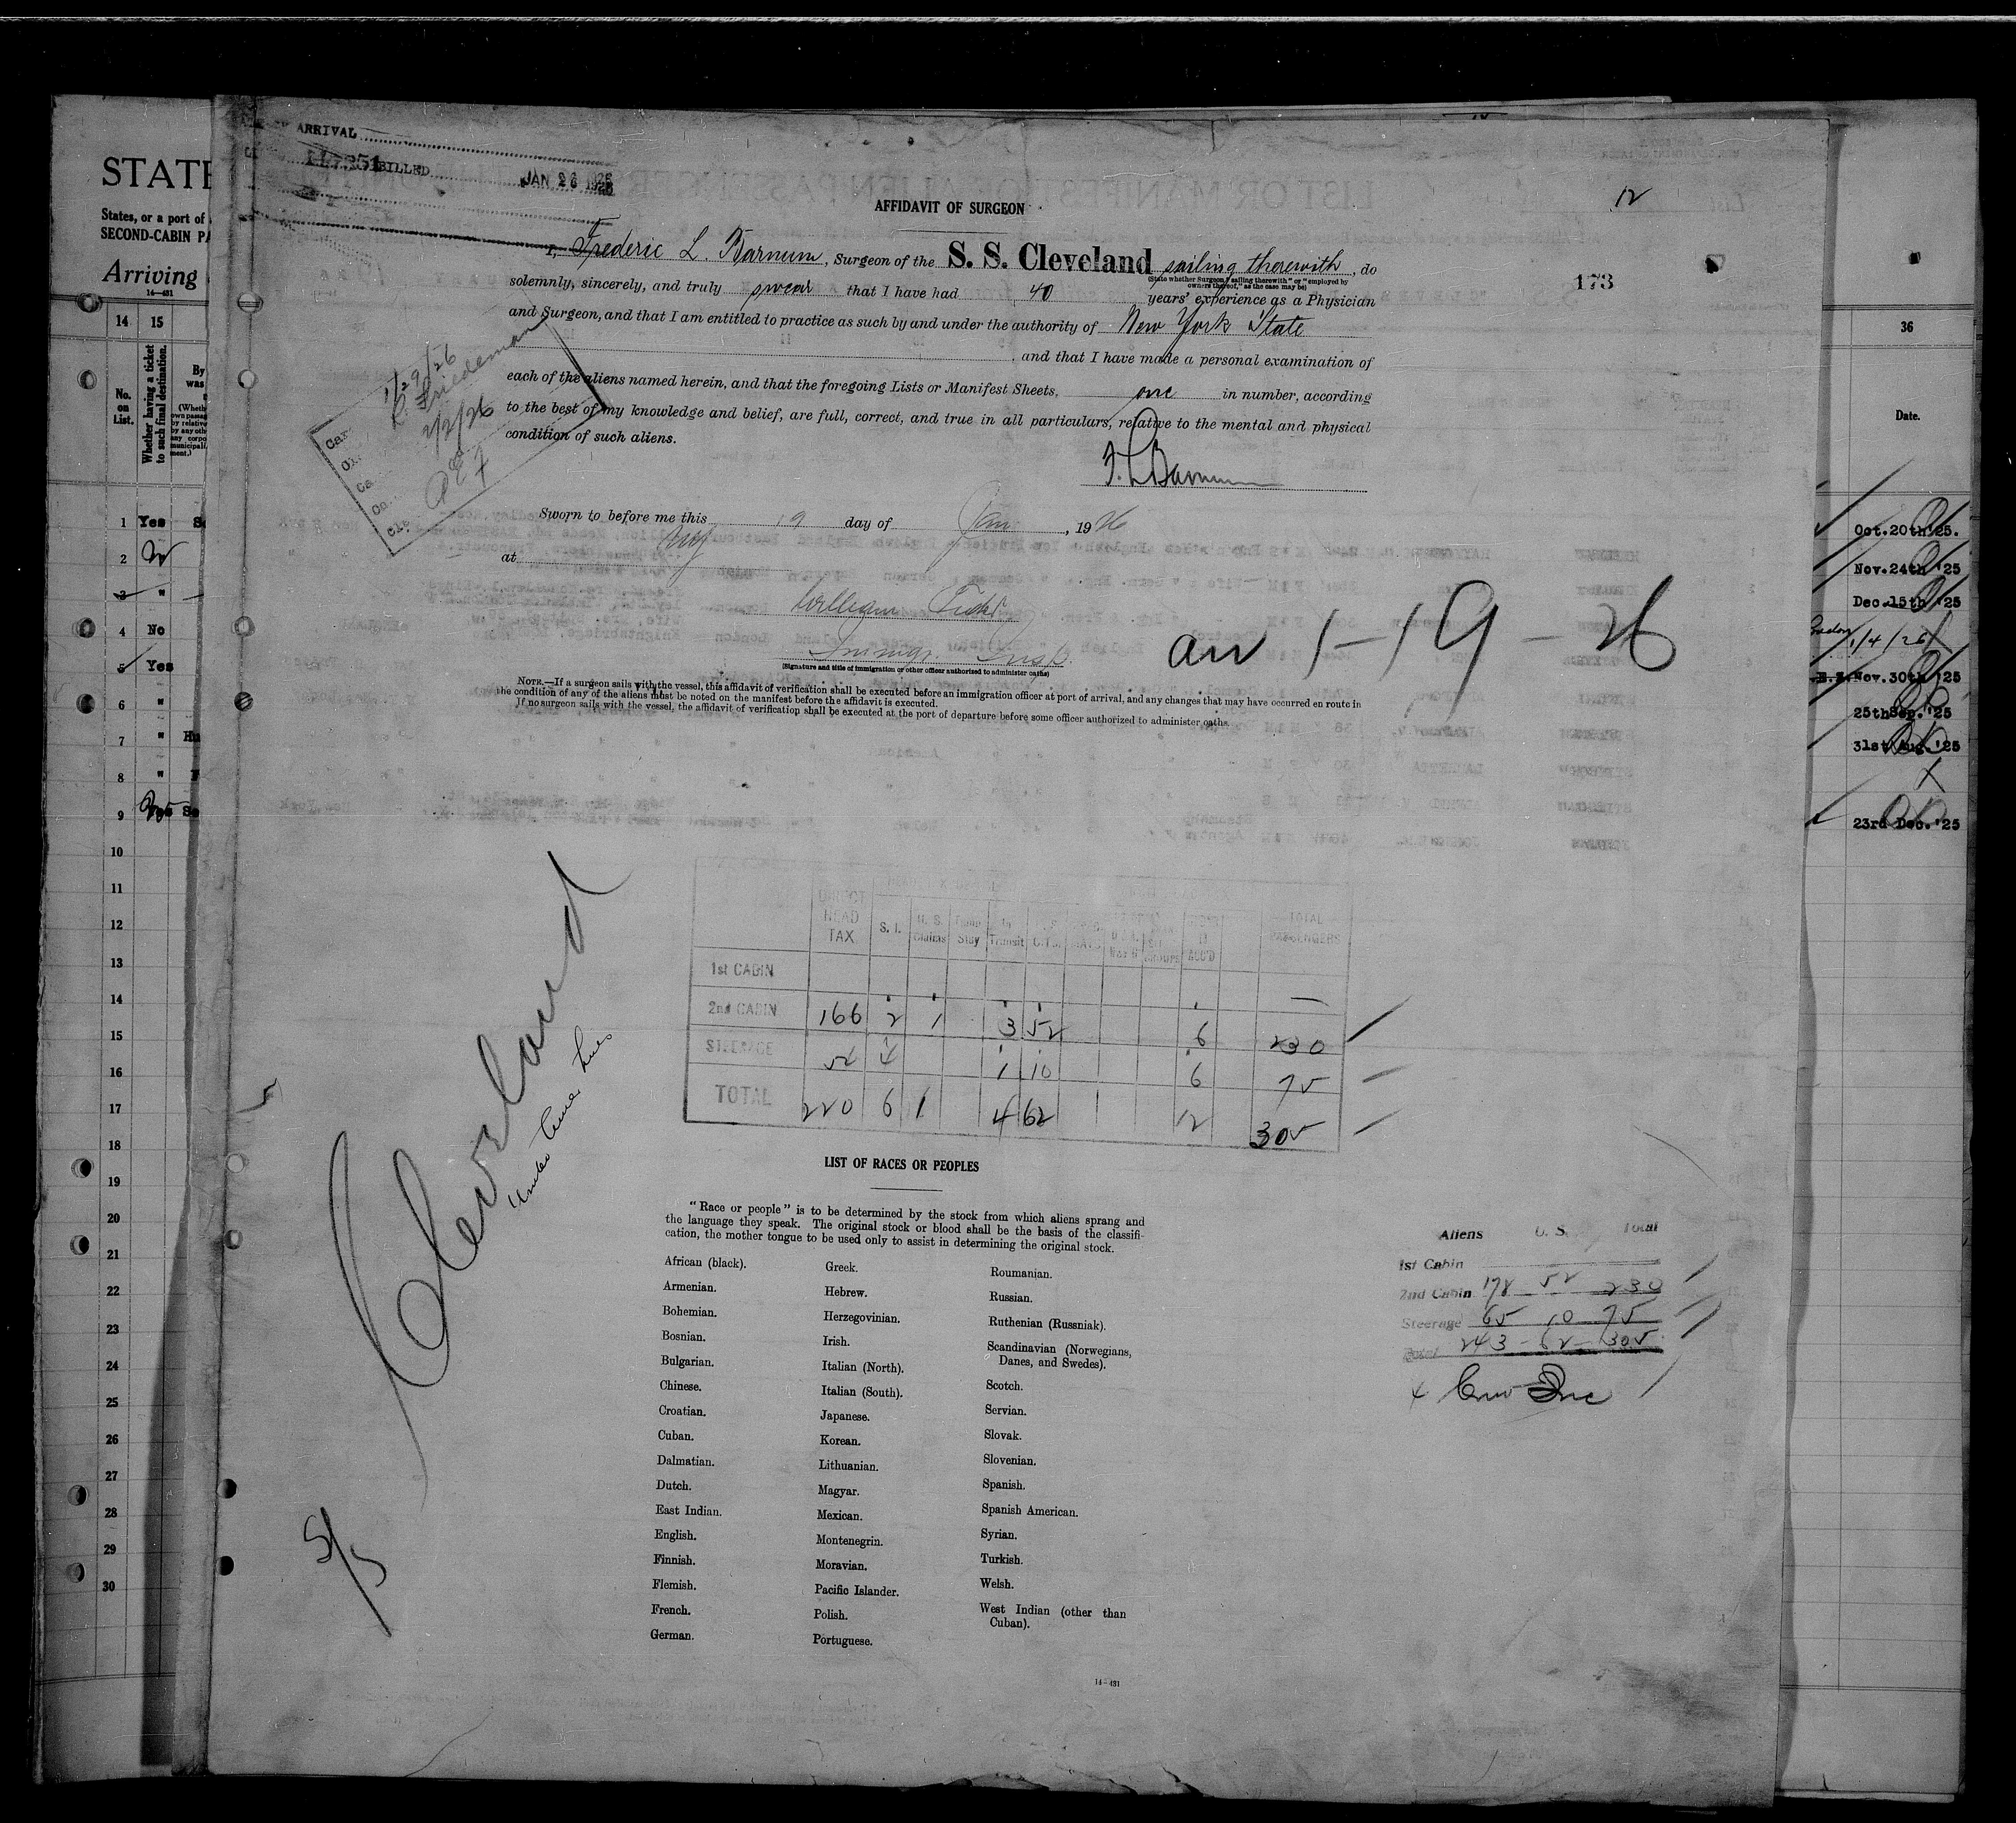 ARRIVAL
BILLED
JAN 26 1926
STATE
States, or a port of
SECOND-CABIN PA
Arriving
14—431
14 15
No. on List.
Whether having a ticket to such final destination.
By
was
(Wheth
own passag
by relative
by any oth
any corpo
municipali
ment.)
1 Yes
2
3 "
4 No
5 Yes
6 "
7 " Hu
8 "
9 Yes Se
10
11
12
13
14
15
16
17
18
19
20
21
22
23
24
25
26
27
28
29
30
12
173
AFFIDAVIT OF SURGEON
I, Frederic L. Barnum, Surgeon of the S. S. Cleveland sailing therewith, do
(State whether Surgeon "sailing therewith" or "employed by
owners thereof," as the case may be)
solemnly, sincerely, and truly swear that I have had 40 years' experience as a Physician
and Surgeon, and that I am entitled to practice as such by and under the authority of New York State
, and that I have made a personal examination of
each of the aliens named herein, and that the foregoing Lists or Manifest Sheets, one in number, according
to the best of my knowledge and belief, are full, correct, and true in all particulars, relative to the mental and physical
condition of such aliens.
F. L. Barnum
1/29/26
L. Friedeman
2/2/26
Sworn to before me this 19 day of Jan, 1926
at NY
William
Immigr. Insp.
(Signature and title of immigration or other officer authorized to administer oaths)
arr 1-19-26
NOTE.—If a surgeon sails with the vessel, this affidavit of verification shall be executed before an immigration officer at port of arrival, and any changes that may have occurred en route in
the condition of any of the aliens must be noted on the manifest before the affidavit is executed.
If no surgeon sails with the vessel, the affidavit of verification shall be executed at the port of departure before some officer authorized to administer oaths.
DIRECT HEAD TAX S. I. U. S. Claims Temp Stay In Transit TOTAL PASSENGERS
1st CABIN —
2nd CABIN 166 2 1 3 52 6 230
STEERAGE 54 4 1 10 6 75
TOTAL 220 6 1 4 62 12 305
Cleveland
LIST OF RACES OR PEOPLES
"Race or people" is to be determined by the stock from which aliens sprang and
the language they speak. The original stock or blood shall be the basis of the classifi-
cation, the mother tongue to be used only to assist in determining the original stock.
African (black). Greek. Roumanian.
Armenian. Hebrew. Russian.
Bohemian. Herzegovinian. Ruthenian (Russniak).
Bosnian. Irish. Scandinavian (Norwegians,
Danes, and Swedes).
Bulgarian. Italian (North).
Chinese. Italian (South). Scotch.
Croatian. Japanese. Servian.
Cuban. Korean. Slovak.
Dalmatian. Lithuanian. Slovenian.
Dutch. Magyar. Spanish.
East Indian. Mexican. Spanish American.
English. Montenegrin. Syrian.
Finnish. Moravian. Turkish.
Flemish. Pacific Islander. Welsh.
French. Polish. West Indian (other than
Cuban).
German. Portuguese.
14—431
Aliens U. S. Total
1st Cabin
2nd Cabin 178 52 230
Steerage 65 10 75
Total 243 - 62 - 305
36
Date.
Oct.20th'25.
Nov.24th '25
Dec.15th '25
1/4/26
Nov.30th '25
25thSep.'25
31st Aug.'25
23rd Dec.'25